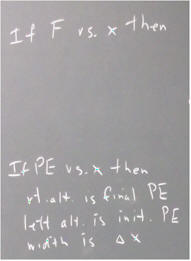 If F vs. x then
If PE vs. x then
rt. alt. is final PE
left alt. is init. PE
width is Δx